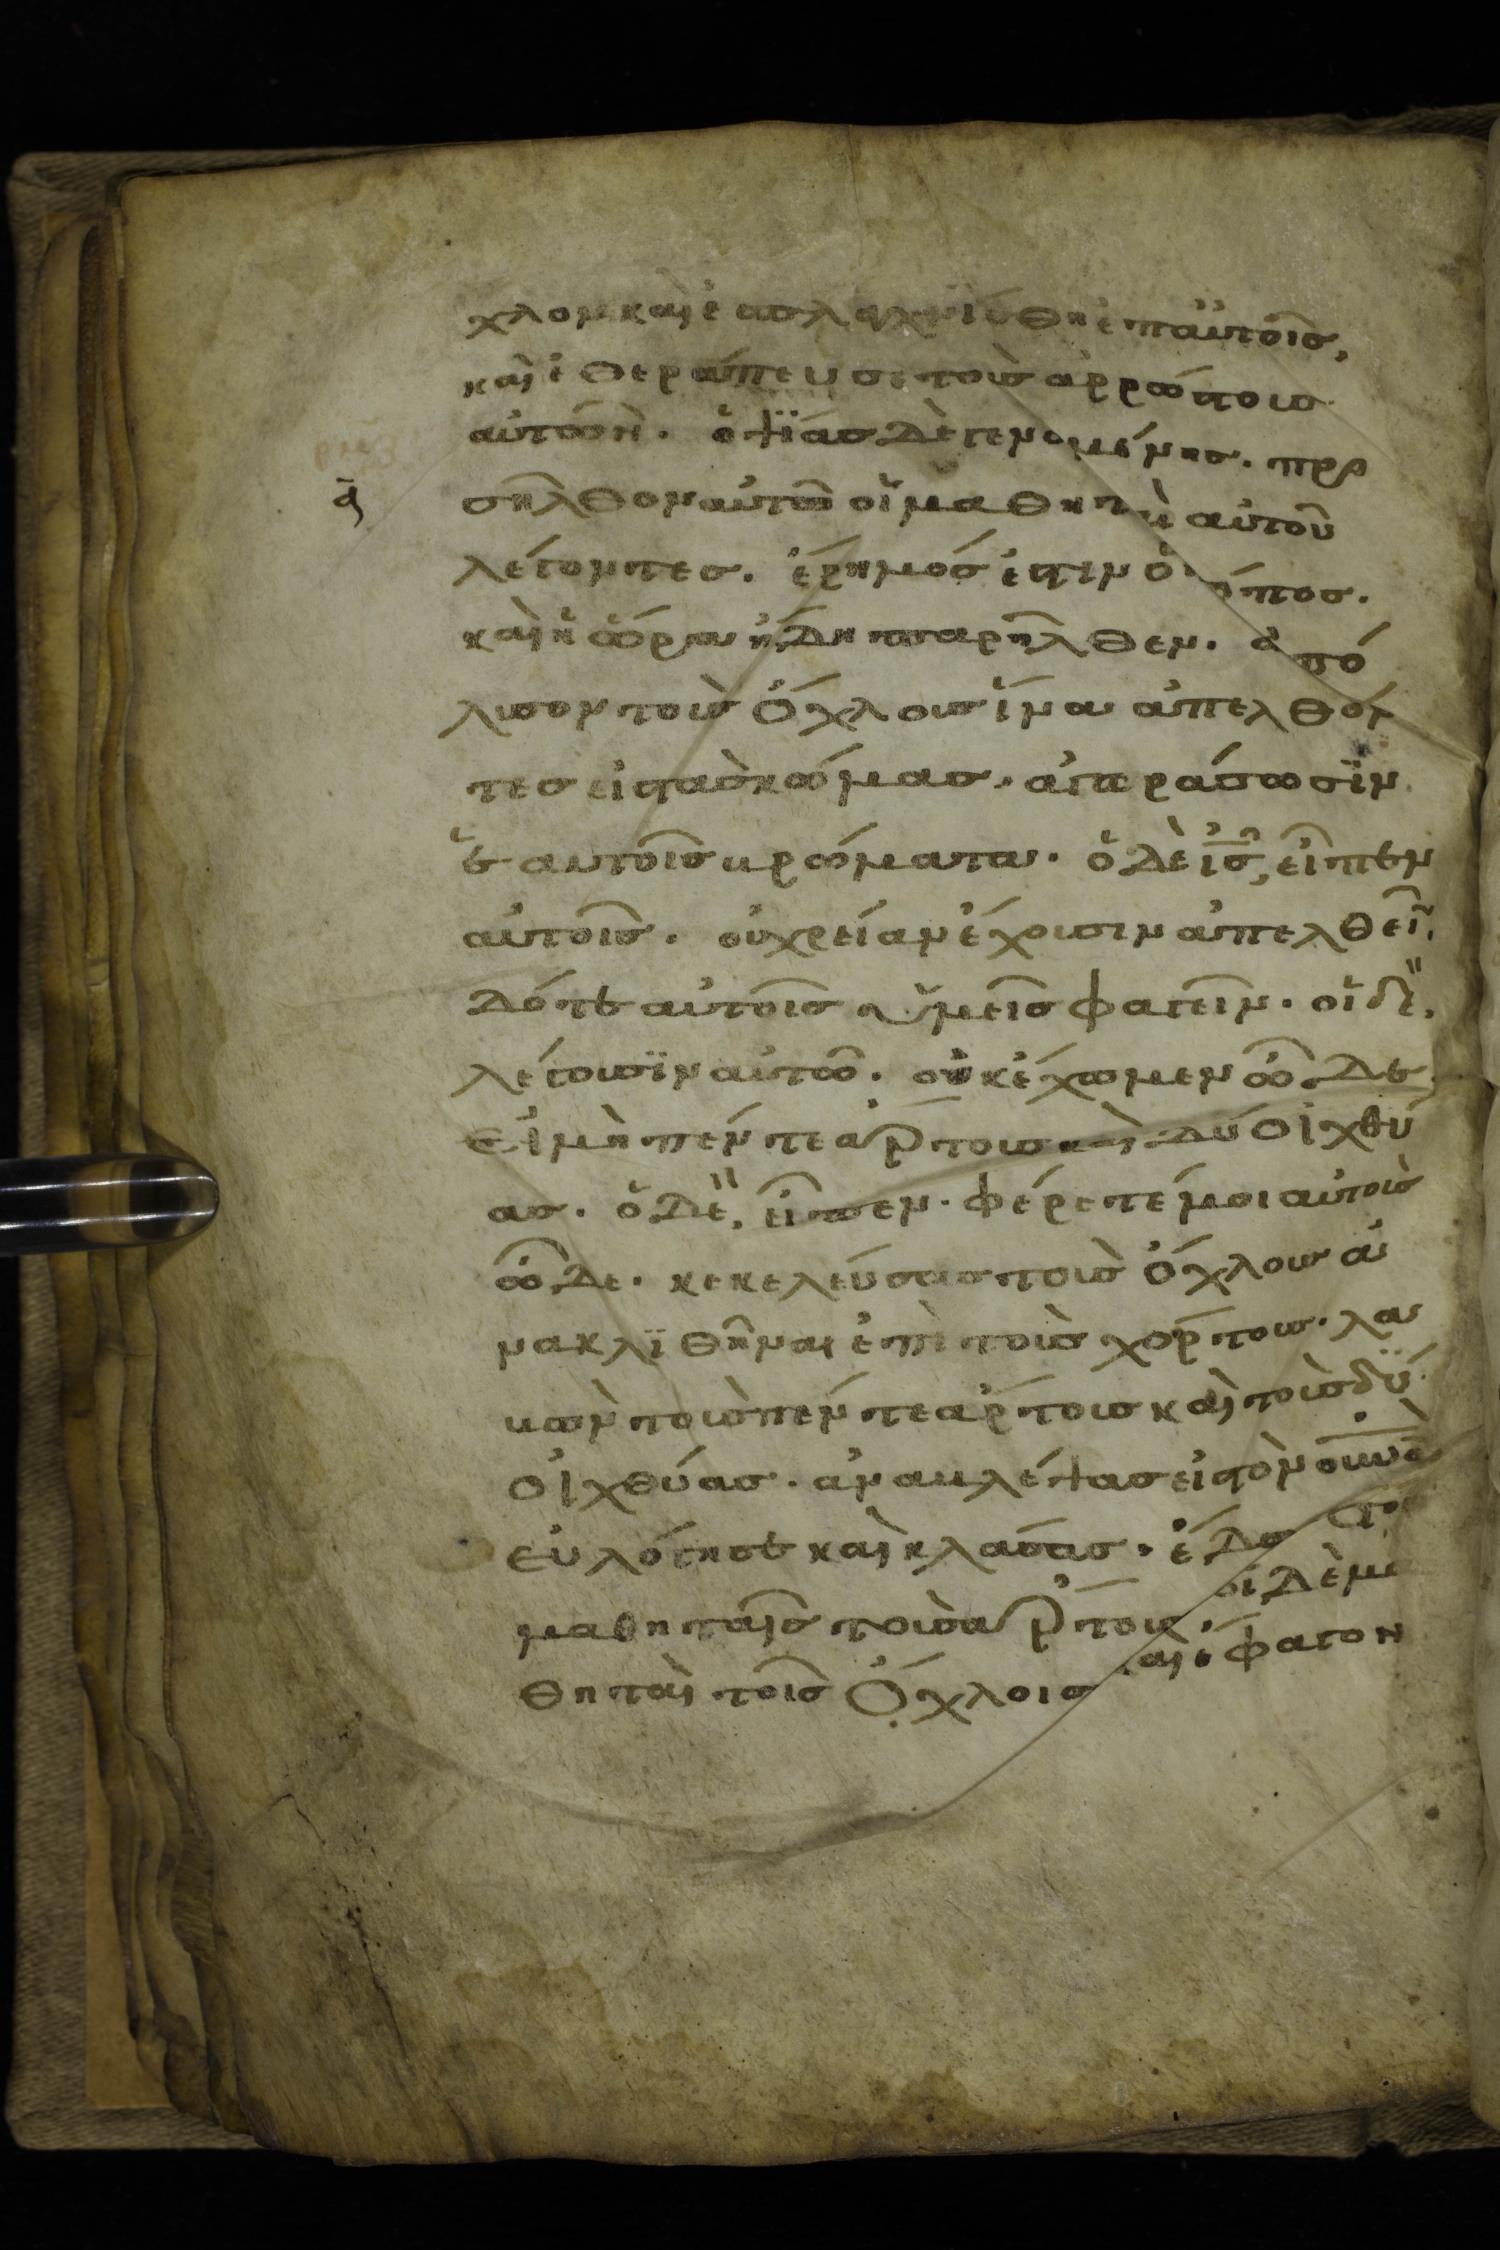 χλον καὶ ἐσπλαγχνίσθη ἐπ αὐτοῖς,
καὶ ἐθεράπευσε τοὺς ἀρρώστους
αὐτῶν. ὀψΐας δὲ γενομένης. προ
σῆλθον αὐτῶ οἱ μαθηταὶ αὐτοῦ
λέγοντες. ἔρημός ἐστιν ὁ τόπος.
καὶ ἡ ὥρα ἤδη παρῆλθεν. ἀπό
λυσον τοὺς ὄχλους ἵνα ἀπελθόν
τες εἰς τὰς κώμας. ἀγοράσωσϊν
ἑαυτοῖς βρώματα. ὁ δὲ ις, εἶπεν
αὐτοῖς. οὐ χρείαν ἔχουσιν ἀπελθεῖν,
δότε αὐτοῖς ὑμεῖς φαγεῖν. οἱ δὲ,
λέγουσϊν αὐτῶ. οὐκ ἔχωμεν ὧδε
εἰ μὴ πέντε ἄρτους καὶ δύο ἰχθύ
ας. ὁ δὲ, εἶπεν. φέρετέ μοι αὐτοὺς
ὧδε. κεκελεύσας τοὺς ὄχλους ἀ
νακλϊθῆναι ἐπὶ τοὺς χόρτους. λα
βὼν τοὺς πέντε ἄρτους καὶ τοὺς δύ
ο ἰχθύας. ἀναβλέψας εἰς τὸν οὐνὸ
εὐλόγησε καὶ κλάσας. ἔδω τοι
μαθηταῖς τοὺς ἄρτους. οἱ δὲ μα
θηταὶ τοῖς ὄχλοις καὶ ἔφαγον
α